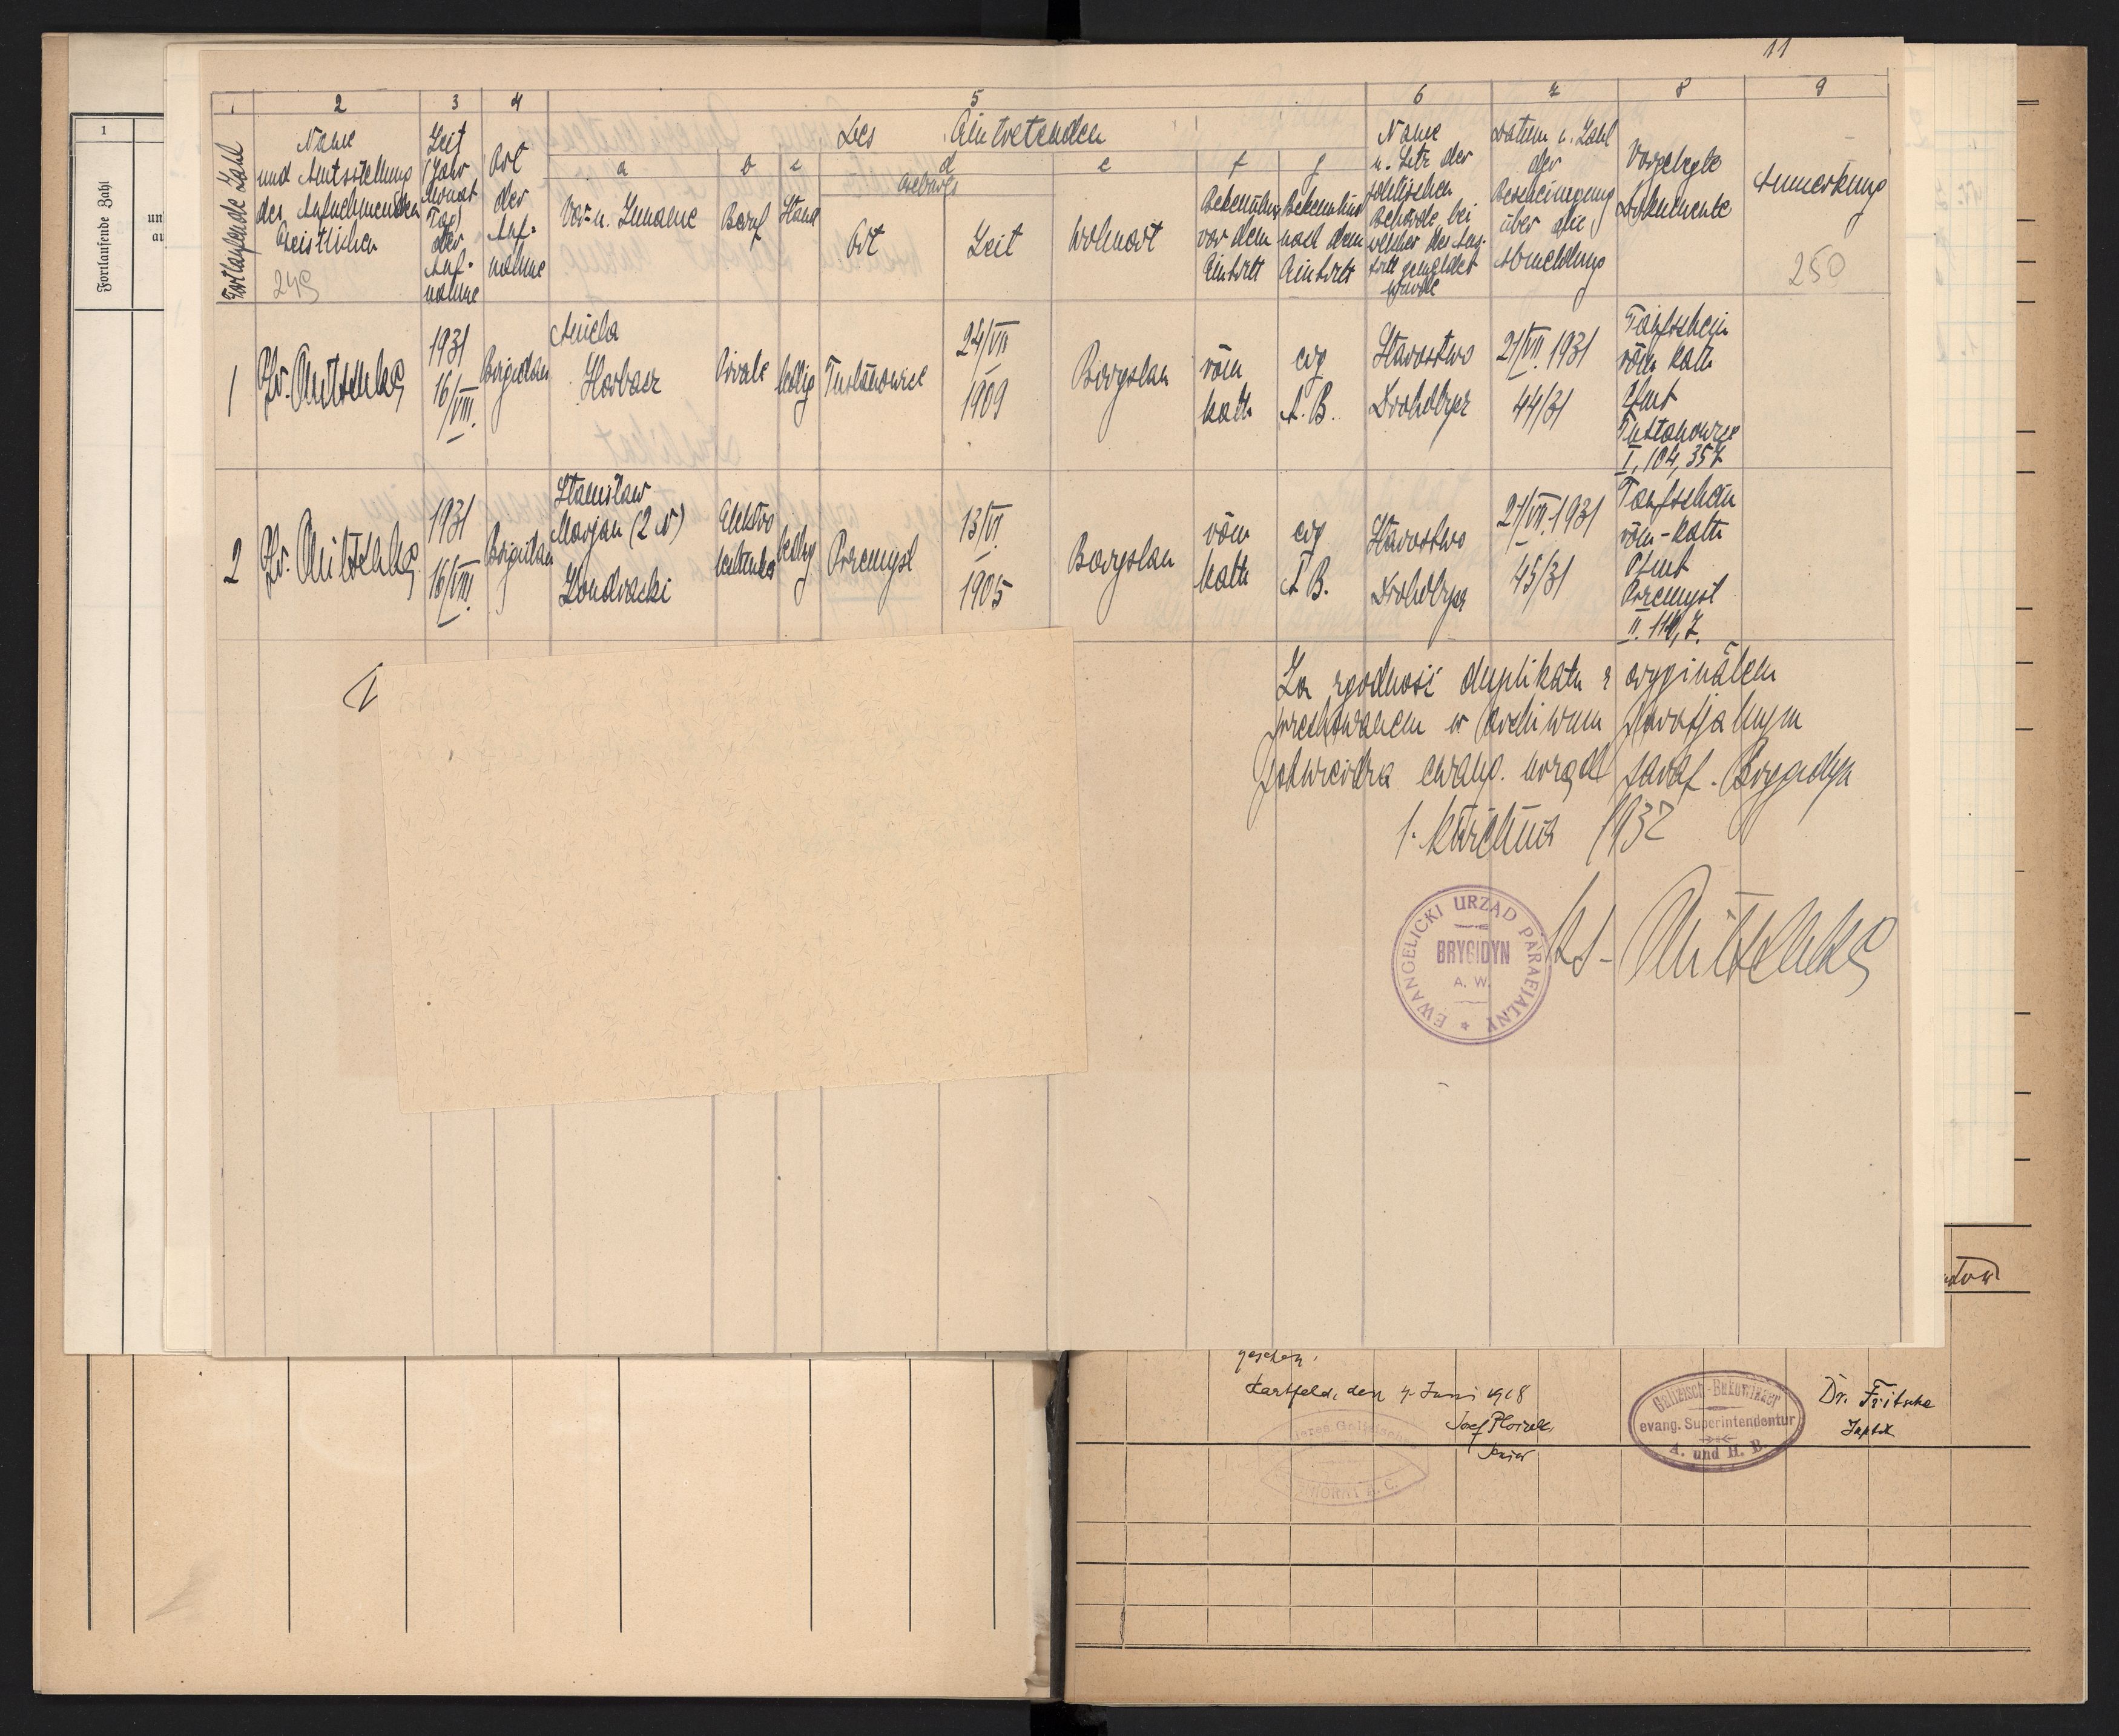 11
1 2 3 4 5 6 7 8 9
Fortlaufende Zahl
Name
und Amtsstellung
des Aufnehmenden
Geistlichen
249
Zeit
(Jahr
Monat
Tag)
der
Auf-
nahme
Ort
der
Auf-
nahme
Des Eintretenden
a b c d e f g
Vor- u. Zuname
Beruf
Stand
Geburts
Ort
Zeit
Wohnort
Bekenntnis
vor dem
Eintritt
Bekenntnis
nach dem
Eintritt
Name
u. Sitz der
politischen
Behörde, bei
welcher der Aus-
tritt gemeldet
wurde
Datum u. Zahl
der
Bescheinigung
über die
Abmeldung
Vorgelegte
Dokumente
Anmerkung
250
1
Pfr. Mitschke
1931
16/VIII.
Brigidau
Aniela
Horbacz
Private
ledig
Tustanowice
24/VII
1909
Boryslau
röm
kath
evg
A. B.
Starostwo
Drohobycz
21/VII. 1931
44/31
Taufschein
röm kath
Pfmt
Tustanowice
I, 104, 357
2
Pfr. Mitschke
1931
16/VIII.
Brigidau
Stanisław
Marjan (2 N)
Kondracki
Elektro
techniker
ledig
Przemysl
13/VI.
1905
Boryslau
röm
kath
evg
A B.
Starostwo
Drohobycz
21/VII. 1931
45/31
Taufschein
röm-kath
Pfmt
Przemysl
Za zgodność duplikatu z oryginałem
przechowanem w archiwum parafjalnym
potwierdza ewang. urząd paraf. Brygidyn
1. kwietnia 1932
EWANGELICKI URZĄD PARAFJALNY
BRYGIDYN
A. W.
Ks. Mitschke
1
Fortlaufende Zahl
un
au
gesehen.
Hartfeld, den 4. Juni 1918
Senior
Galizisch-Bukowinaer
evang. Superintendentur
A. und H. B.
Dr. Fritsche
Suptdt